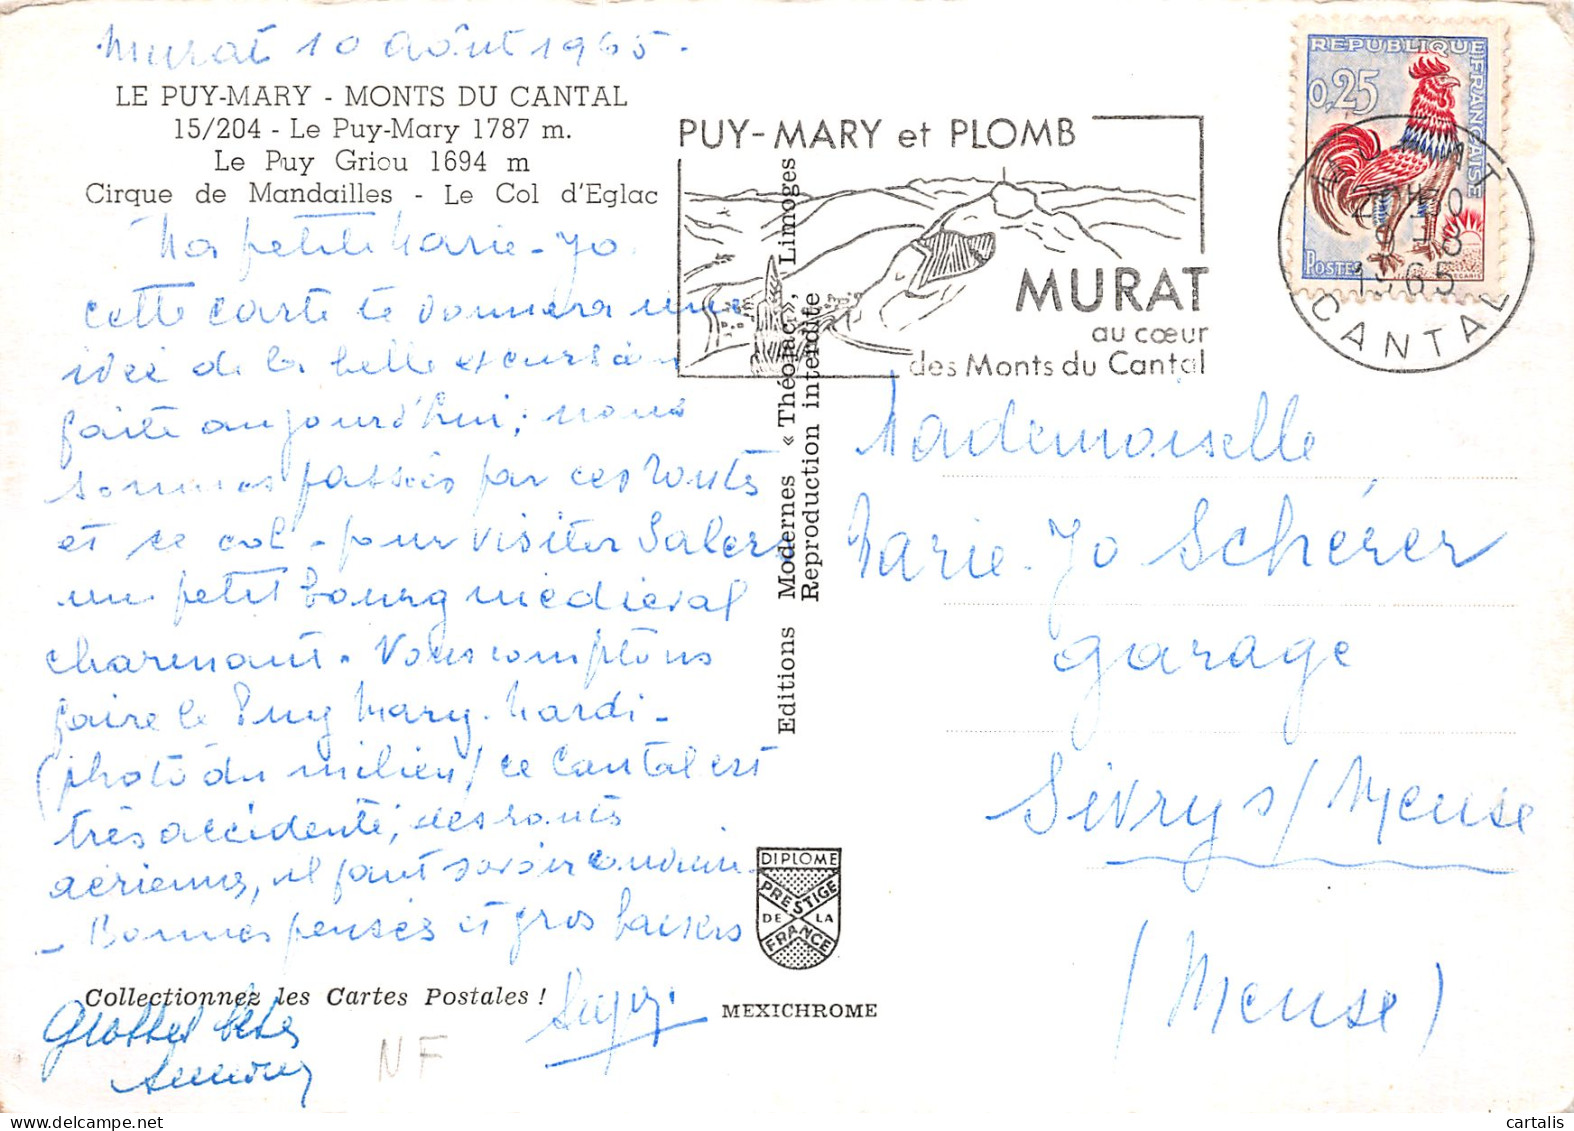 Murat 10 Août 1965.
LE PUY-MARY - MONTS DU CANTAL
15/204 - Le Puy-Mary 1787 m.
Le Puy Griou 1694 m
Cirque de Mandailles - Le Col d'Eglac
Ma petite Marie-Jo
cette carte te donnera une
idée de la belle excursion
faite aujourd'hui; nous
sommes passés par ces routes
et ce col - pour visiter Salers
un petit bourg médiéval
charmant. Nous comptons
faire le Puy Mary. Mardi -
(photo du milieu) ce Cantal est
très accidenté, des routes
aériennes, il faut savoir conduire
- Bonnes pensées et gros baisers
Collectionnez les Cartes Postales !
Grosses bêtes
NF
Editions Modernes « Théojac », Limoges
Reproduction interdite
DIPLOME
PRESTIGE
DE LA
FRANCE
MEXICHROME
PUY-MARY et PLOMB
MURAT
au cœur
des Monts du Cantal
REPUBLIQUE FRANÇAISE
0,25
POSTES
1965
CANTAL
Mademoiselle
Marie-Jo Schérer
garage
Sivry s/Meuse
(Meuse)
cartalis
delcampe.net